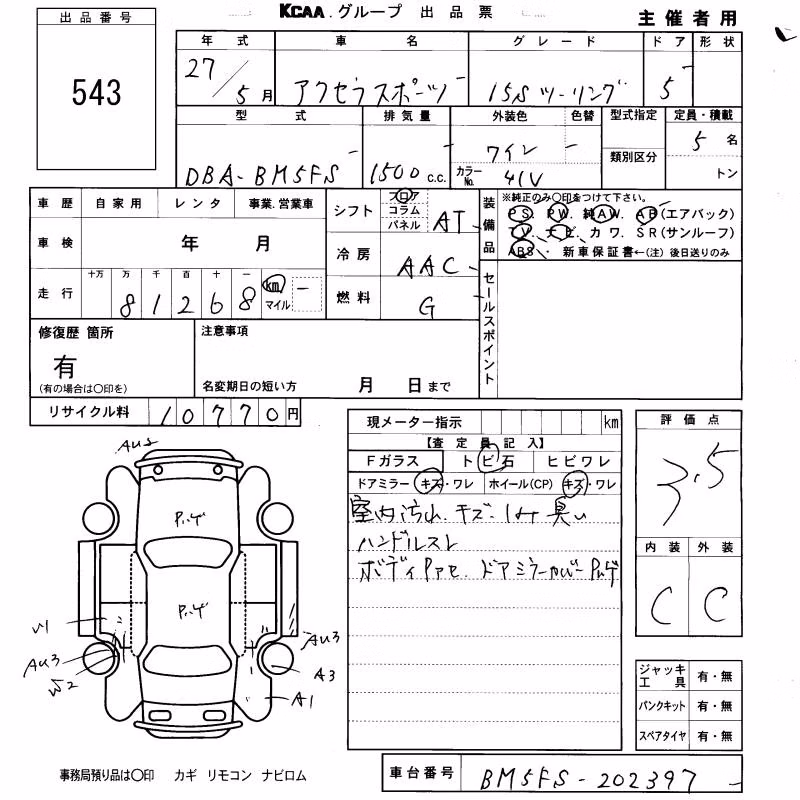 出品番号
543
KCAA.グループ 出品票
主催者用
年式 車名 グレード ドア 形状
27/5月 アクセラスポーツ 15Sツーリング 5
型式 排気量 外装色 色替 型式指定 定員・積載
類別区分
DBA-BM5FS 1500 c.c. ワイン カラーNo. 41V 5名
トン
車歴 自家用 レンタ 事業.営業車
車検 年 月
走行 十万 万 千 百 十 一
81268 km マイル
シフト フロア コラム パネル AT
冷房 AAC
燃料 G
装備品
※純正のみ○印をつけて下さい。
PS. PW. 純AW. AB(エアバック)
TV. ナビ. カワ. SR(サンルーフ)
ABS. 新車保証書←(注)後日送りのみ
セールスポイント
修復歴 箇所
有
(有の場合は○印を)
注意事項
名変期日の短い方 月 日まで
リサイクル料 10770円
現メーター指示 km
【査定員記入】
Fガラス トビ石 ヒビワレ
ドアミラー キズ・ワレ ホイール(CP) キズ・ワレ
室内汚れ.キズ.しみ 臭い
ハンドルスレ
ボディPアセ.ドアミラーカバーPハゲ
評価点
3.5
内装 外装
C C
AU2
Pハゲ
Pハゲ
U1
AU3
W2
AU3
A3
A1
ジャッキ工具 有・無
パンクキット 有・無
スペアタイヤ 有・無
事務局預り品は○印 カギ リモコン ナビロム
車台番号 BM5FS-202397